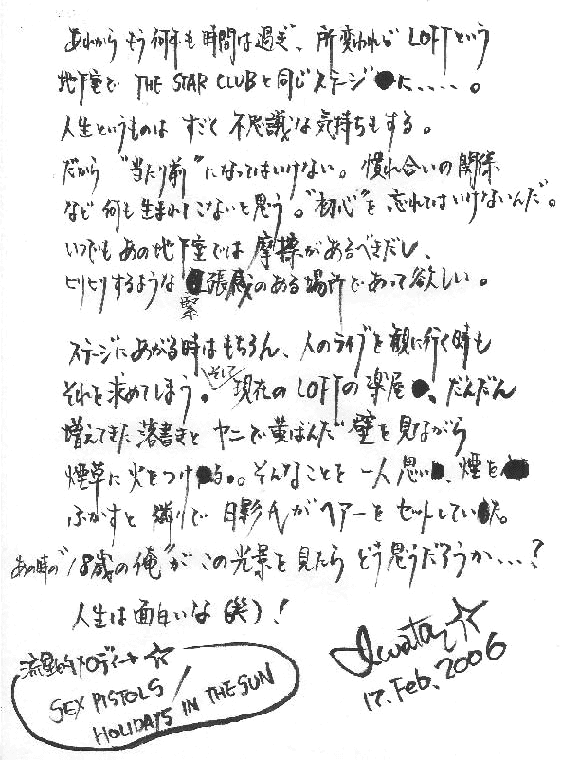 あれからもう何年も時間は過ぎ、所変われば LOFTという
地下室で THE STAR CLUBと同じステージに、、、、。
人生というものは すごく 不思議な気持ちもする。
だから “当たり前” になってはいけない。慣れ合いの関係
など 何も生まれてこないと思う。“初心”を 忘れてはいけないんだ。
いつでも あの地下室では 摩擦があるべきだし、
ヒリヒリするような 緊張感のある場所であって欲しい。
ステージにあがる時はもちろん、人のライブを観に行く時も
それを求めてしまう。そして 現在の LOFTの楽屋、だんだん
増えてきた落書きと ヤニで黄ばんだ 壁を見ながら
煙草に火をつける。そんなことを 一人思い、煙を
ふかすと 隣りで 日影氏がヘアーをセットしていた。
あの時の“18歳の俺”が この光景を見たら どう思うだろうか、、、?
人生は面白いな(笑)!
Iwata☆
17. Feb. 2006
流星的メロディー☆
SEX PISTOLS /
HOLIDAYS IN THE SUN